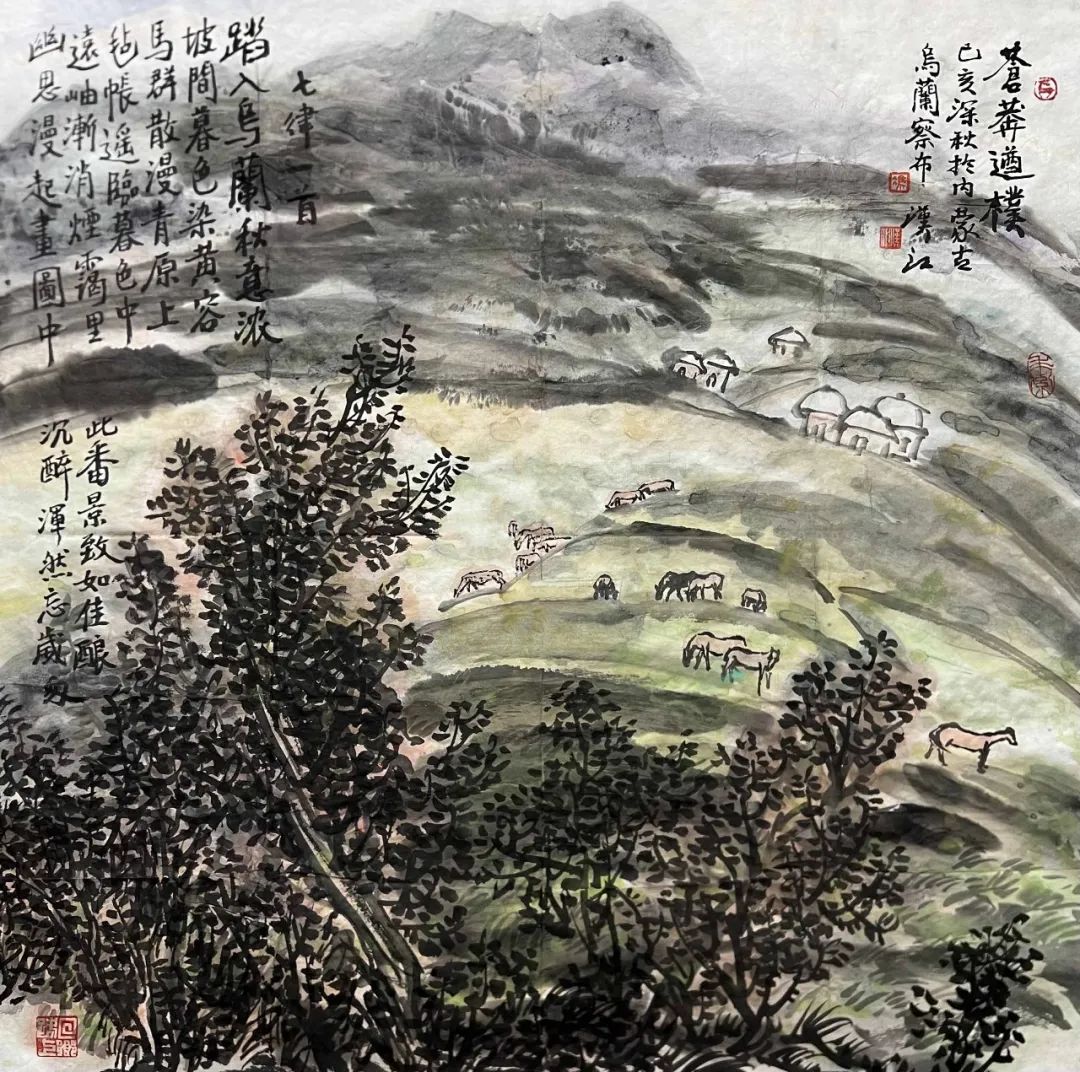 蒼莽遒樸
已亥深秋於内蒙古
烏蘭察布 漢江
七律一首
踏入烏蘭秋意浓
坡間暮色染黄容
馬群散漫青原上
毡帳遥臨暮色中
遠岫漸消煙靄里
幽思漫起畫圖中
此番景致如佳酿
沉醉渾然忘歲